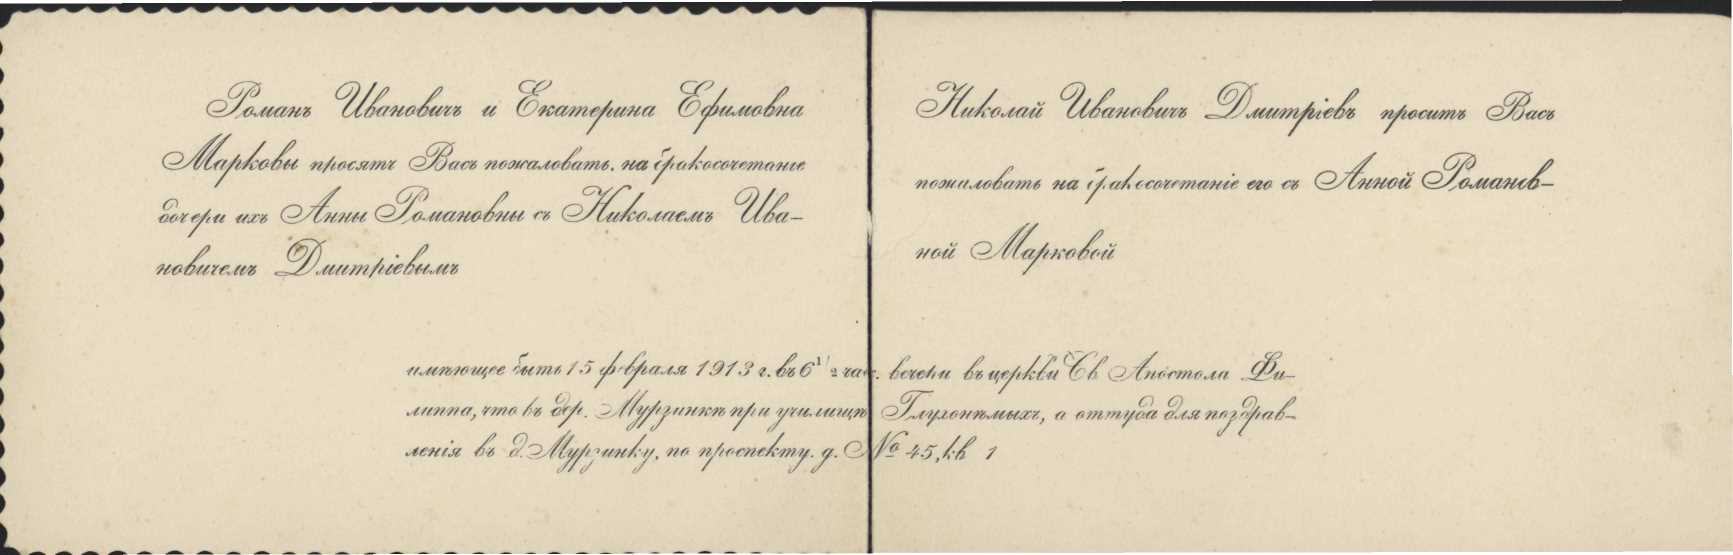 Романъ Ивановичъ и Екатерина Ефимовна
Марковы просятъ Васъ пожаловать. на бракосочетаніе
дочери ихъ Анны Романовны съ Николаемъ Ива-
новичемъ Дмитріевымъ
Николай Ивановичъ Дмитріевъ проситъ Васъ
пожаловать на бракосочетаніе его съ Анной Романов-
ной Марковой
имѣющее быть 15 февраля 1913 г. въ 6 1/2 час. вечера въ церкви Св Апостола Фи-
липпа, что въ дер. Мурзинкѣ при училищѣ Глухонѣмыхъ, а оттуда для поздрав-
ленія въ д. Мурзинку, по проспекту. д. № 45, кв 1